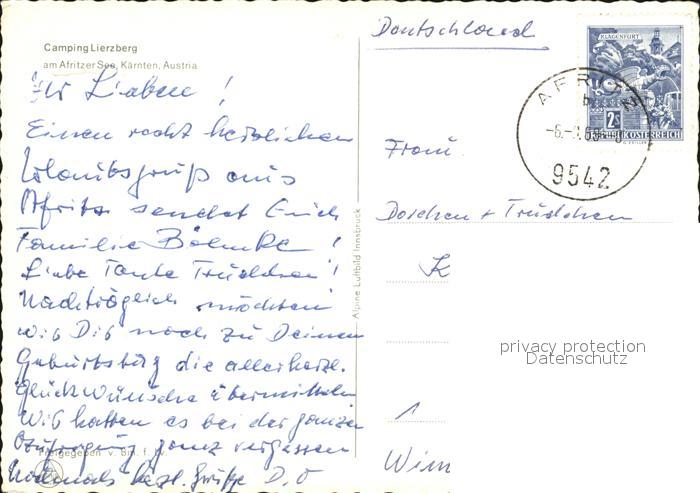 Camping Lierzberg
am Afritzer See, Kärnten, Austria
Ihr Lieben!
Einen recht herzlichen
Urlaubsgruß aus
Afritz sendet Euch
Familie Böhnke!
Liebe Tante Trudchen!
Nachträglich möchten
wir Dir noch zu Deinem
Geburtstag die allerherzl.
Glückwünsche übermitteln
Wir hatten es bei der ganzen
Aufregung ganz vergessen
Nochmals herzl. Grüße D. O
Freigegeben v. Bm. f. Lv.
Alpine Luftbild Innsbruck
Deutschland
KLAGENFURT
2S
REPUBLIK ÖSTERREICH
AFRITZ
b
9542
Frau
Dorchen + Trudchen
K
privacy protection
Datenschutz
1